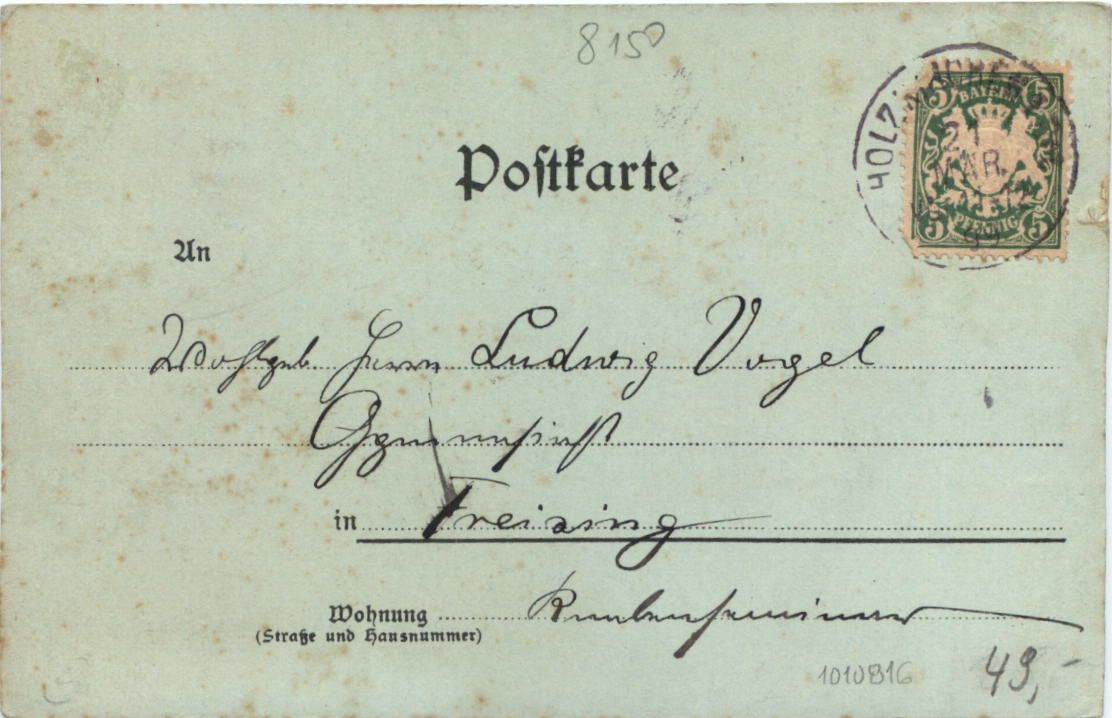 8150
Postkarte
5 BAYERN 5
21
MÄR.
5 PFENNIG 5
An
Wohlgeb. Herrn Ludwig Vogel
Gymnasiast
in Freising
Wohnung Knabenseminar
(Straße und Hausnummer)
1010816 49,-